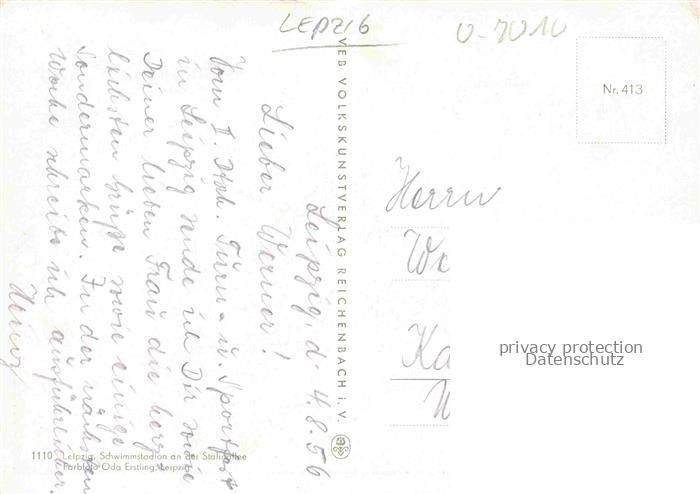 LEPZIG
O-7010
Nr. 413
VEB VOLKSKUNSTVERLAG REICHENBACH i. V.
Leipzig, d. 4.8.56
Lieber Werner!
Vom II. Dtsch. Turn- u. Sportfest
in Leipzig sende ich Dir sowie
Deiner lieben Frau die herz-
lichsten Grüße sowie einige
Sondermarken. In der nächsten
Woche schreibe ich ausführlicher.
Heinz
Herrn
We
Ka
privacy protection
Datenschutz
1110 Leipzig, Schwimmstadion an der Stalinallee
Farbfoto Oda Erstling, Leipzig